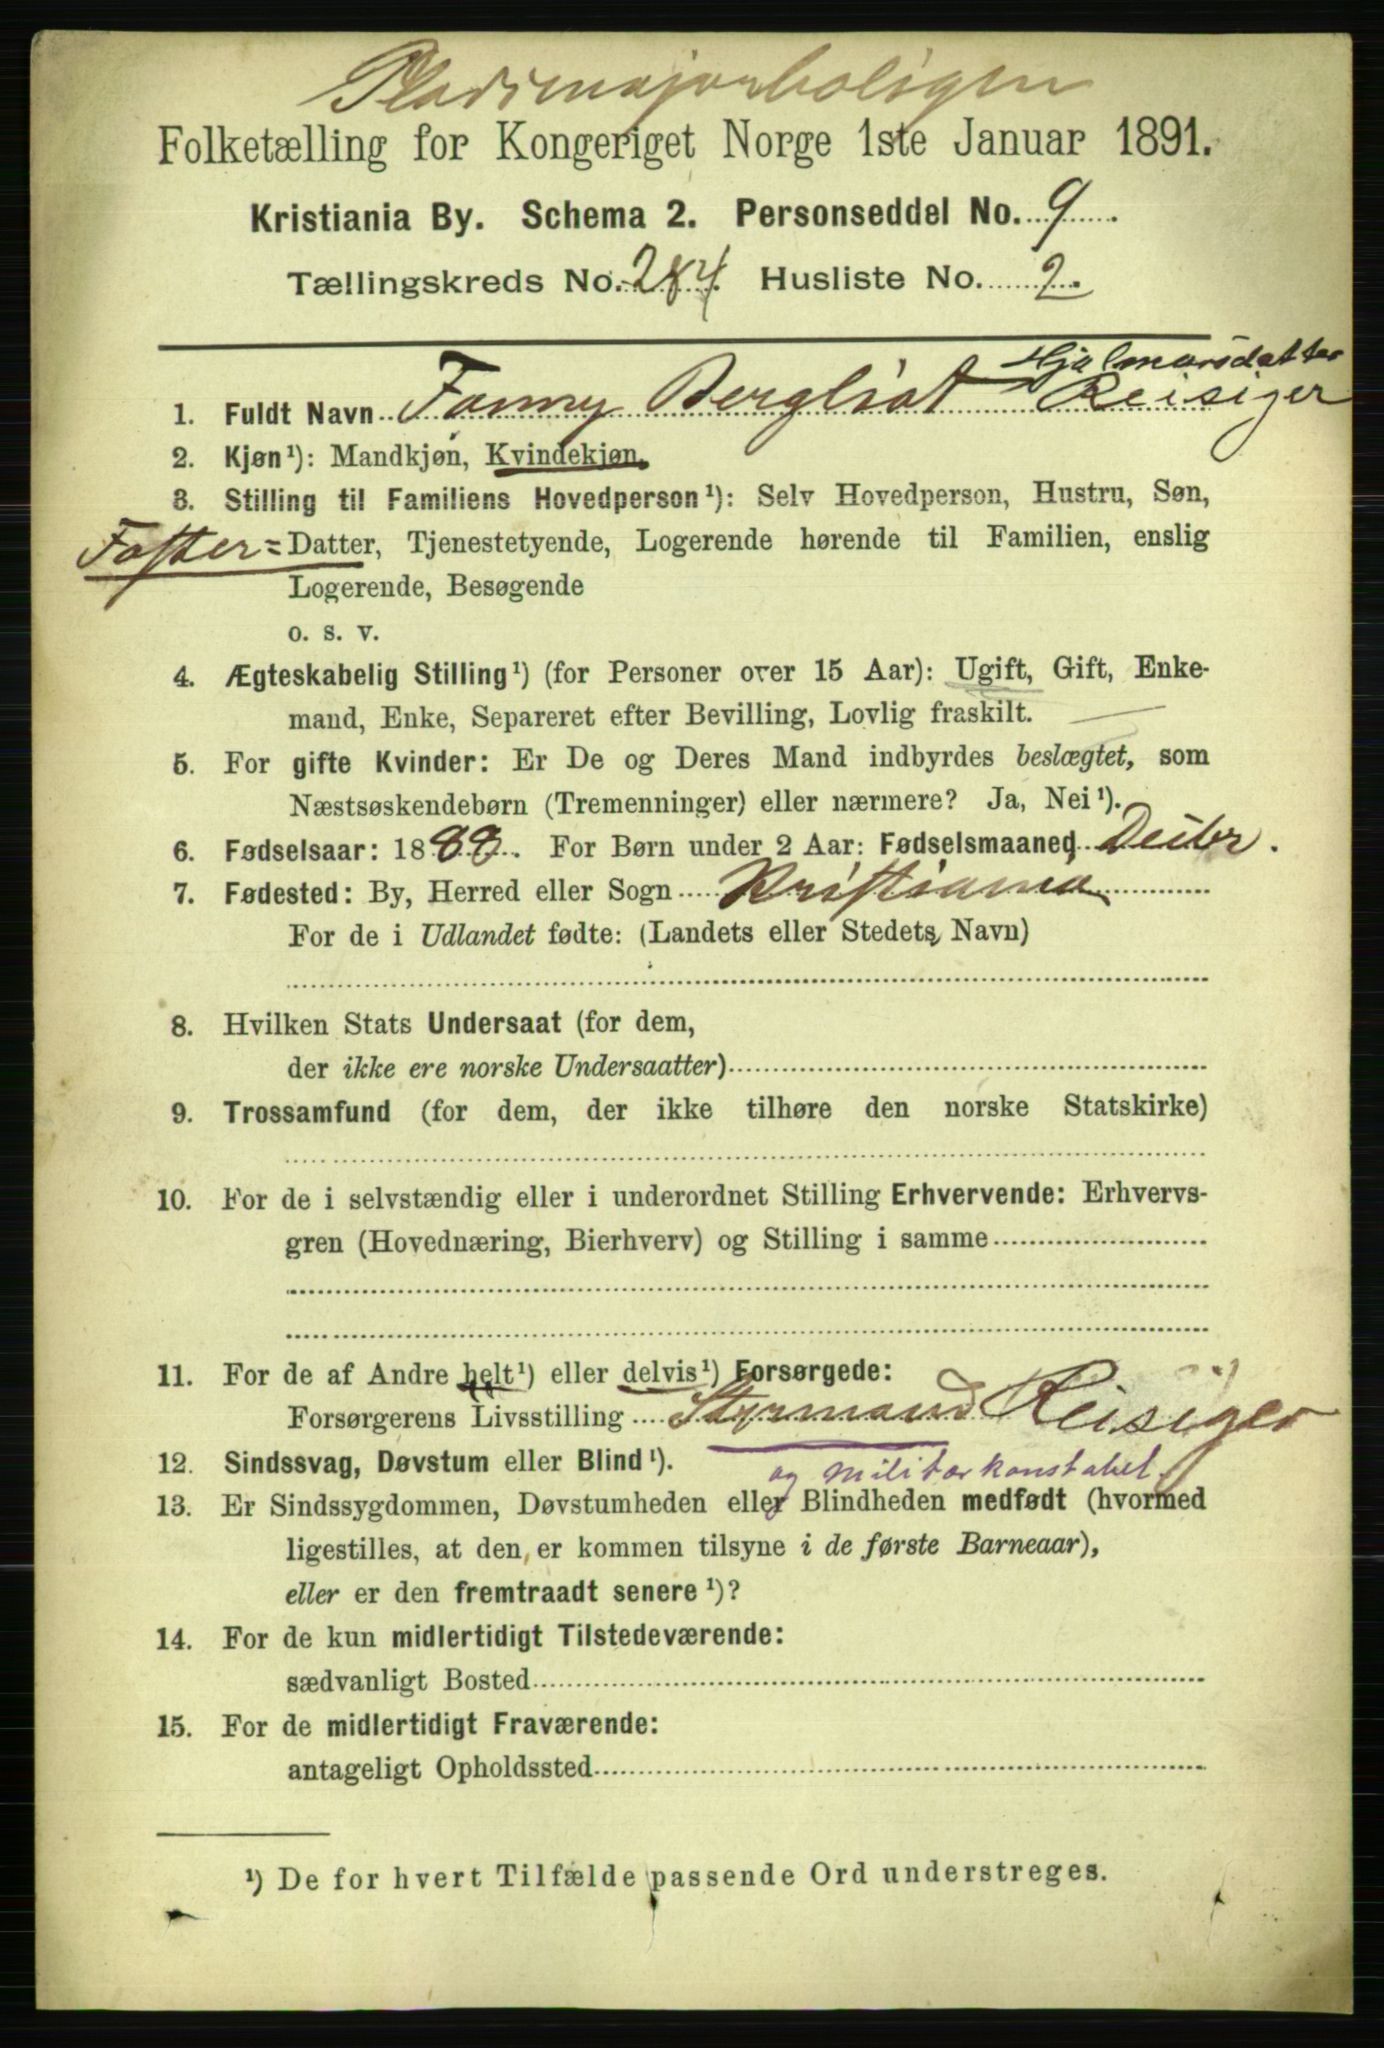 Pladsmajorboligen
Folketælling for Kongeriget Norge 1ste Januar 1891.
Kristiania By. Schema 2. Personseddel No. 9
Tællingskreds No. 284 Husliste No. 2.
Hjalmarsdatter
1. Fuldt Navn Fanny Bergliot Reisiger
2. Kjøn¹): Mandkjøn, Kvindekjøn.
3. Stilling til Familiens Hovedperson¹): Selv Hovedperson, Hustru, Søn,
Foster= Datter, Tjenestetyende, Logerende hørende til Familien, enslig
Logerende, Besøgende
o. s. v.
4. Ægteskabelig Stilling¹) (for Personer over 15 Aar): Ugift, Gift, Enke-
mand, Enke, Separeret efter Bevilling, Lovlig fraskilt.
5. For gifte Kvinder: Er De og Deres Mand indbyrdes beslægtet, som
Næstsøskendebørn (Tremenninger) eller nærmere? Ja, Nei¹).
6. Fødselsaar: 1888. For Børn under 2 Aar: Fødselsmaaned Decbr.
7. Fødested: By, Herred eller Sogn Kristiania
For de i Udlandet fødte: (Landets eller Stedets Navn)
8. Hvilken Stats Undersaat (for dem,
der ikke ere norske Undersaatter)
9. Trossamfund (for dem, der ikke tilhøre den norske Statskirke)
10. For de i selvstændig eller i underordnet Stilling Erhvervende: Erhvervs-
gren (Hovednæring, Bierhverv) og Stilling i samme
11. For de af Andre helt¹) eller delvis¹) Forsørgede:
Forsørgerens Livsstilling Styrmand Reisiger
12. Sindssvag, Døvstum eller Blind¹). og militærkonstabel
13. Er Sindssygdommen, Døvstumheden eller Blindheden medfødt (hvormed
ligestilles, at den er kommen tilsyne i de første Barneaar),
eller er den fremtraadt senere¹)?
14. For de kun midlertidigt Tilstedeværende:
sædvanligt Bosted
15. For de midlertidigt Fraværende:
antageligt Opholdssted
¹) De for hvert Tilfælde passende Ord understreges.